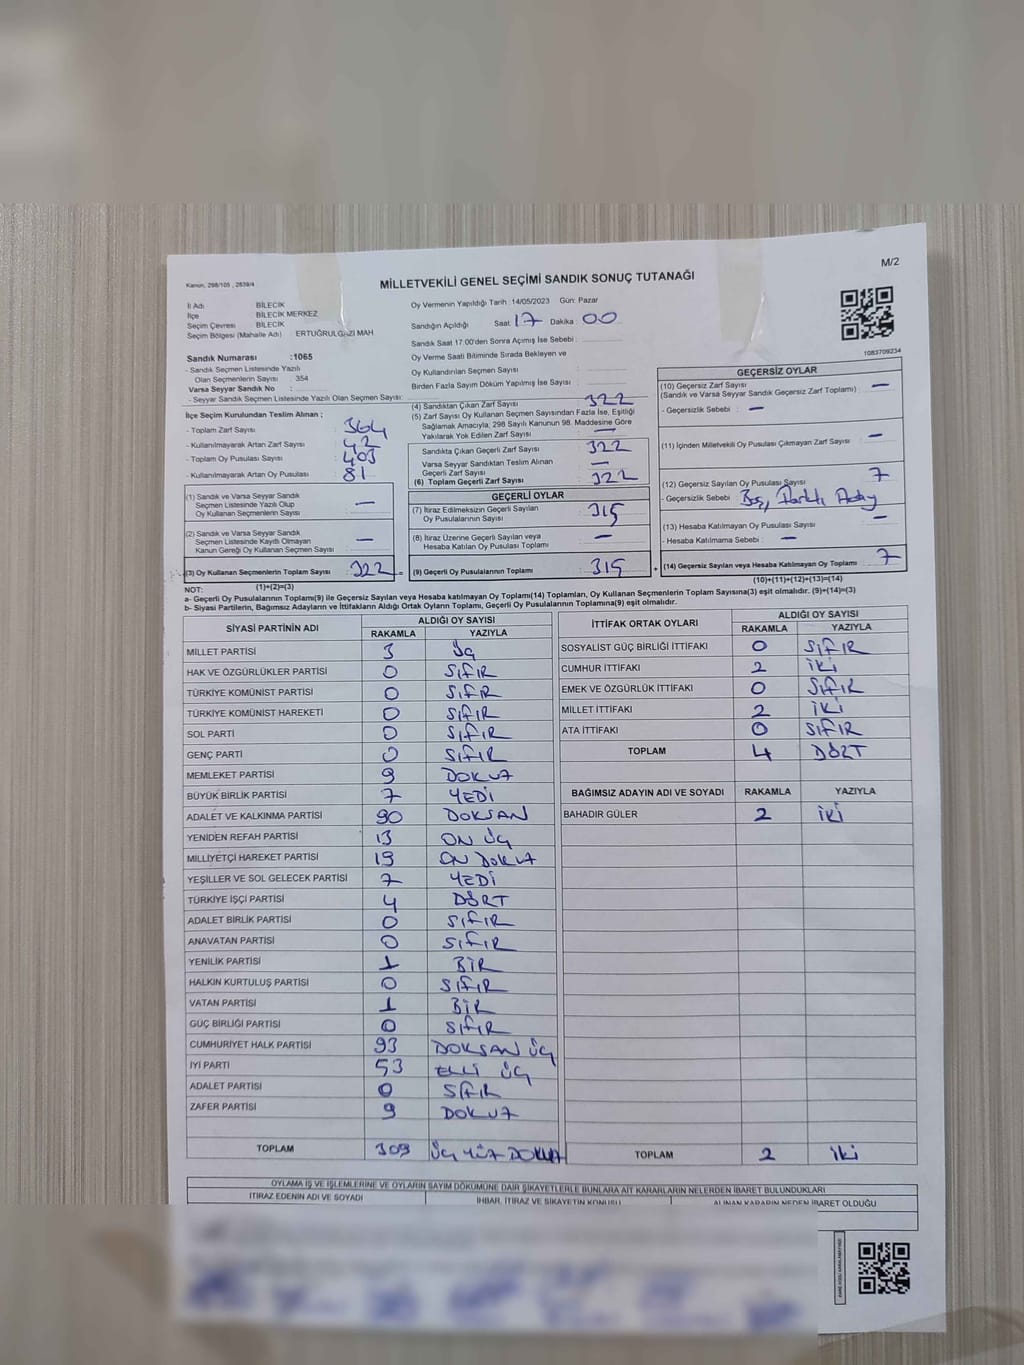 M/2
Kanun, 298/105 , 2839/4
MİLLETVEKİLİ GENEL SEÇİMİ SANDIK SONUÇ TUTANAĞI
İl Adı BİLECİK
İlçe BİLECİK MERKEZ
Seçim Çevresi BİLECİK
Seçim Bölgesi (Mahalle Adı) ERTUĞRULGAZİ MAH
Sandık Numarası :1065
- Sandık Seçmen Listesinde Yazılı
Olan Seçmenlerin Sayısı : 354
Varsa Seyyar Sandık No :
- Seyyar Sandık Seçmen Listesinde Yazılı Olan Seçmen Sayısı:
Oy Vermenin Yapıldığı Tarih :14/05/2023 Gün: Pazar
Sandığın Açıldığı Saat 17 Dakika 00
Sandık Saat 17.00'den Sonra Açımış İse Sebebi :
Oy Verme Saati Bitiminde Sırada Bekleyen ve
Oy Kullandırılan Seçmen Sayısı :
Birden Fazla Sayım Döküm Yapılmış İse Sayısı :
1083709234
İlçe Seçim Kurulundan Teslim Alınan ;
- Toplam Zarf Sayısı : 364
- Kullanılmayarak Artan Zarf Sayısı : 42
- Toplam Oy Pusulası Sayısı : 403
- Kullanılmayarak Artan Oy Pusulası : 81
(1) Sandık ve Varsa Seyyar Sandık
Seçmen Listesinde Yazılı Olup
Oy Kullanan Seçmenlerin Sayısı : —
(2) Sandık ve Varsa Seyyar Sandık
Seçmen Listesinde Kayıtlı Olmayan
Kanun Gereği Oy Kullanan Seçmen Sayısı : —
(3) Oy Kullanan Seçmenlerin Toplam Sayısı : 322 =
(1)+(2)=(3)
(4) Sandıktan Çıkan Zarf Sayısı : 322
(5) Zarf Sayısı Oy Kullanan Seçmen Sayısından Fazla İse, Eşitliği
Sağlamak Amacıyla, 298 Sayılı Kanunun 98. Maddesine Göre
Yakılarak Yok Edilen Zarf Sayısı : —
Sandıkta Çıkan Geçerli Zarf Sayısı : 322
Varsa Seyyar Sandıktan Teslim Alınan
Geçerli Zarf Sayısı : —
(6) Toplam Geçerli Zarf Sayısı : 322
GEÇERLİ OYLAR
(7) İtiraz Edilmeksizin Geçerli Sayılan
Oy Pusulalarının Sayısı : 315
(8) İtiraz Üzerine Geçerli Sayılan veya
Hesaba Katılan Oy Pusulası Toplamı : —
(9) Geçerli Oy Pusulalarının Toplamı : 315 +
GEÇERSİZ OYLAR
(10) Geçersiz Zarf Sayısı : —
(Sandık ve Varsa Seyyar Sandık Geçersiz Zarf Toplamı) :
- Geçersizlik Sebebi : —
(11) İçinden Milletvekili Oy Pusulası Çıkmayan Zarf Sayısı : —
(12) Geçersiz Sayılan Oy Pusulası Sayısı : 7
- Geçersizlik Sebebi : Boş,
(13) Hesaba Katılmayan Oy Pusulası Sayısı : —
- Hesaba Katılmama Sebebi : —
(14) Geçersiz Sayılan veya Hesaba Katılmayan Oy Toplamı : 7
(10)+(11)+(12)+(13)=(14)
NOT:
a- Geçerli Oy Pusulalarının Toplamı(9) ile Geçersiz Sayılan veya Hesaba katılmayan Oy Toplamı(14) Toplamları, Oy Kullanan Seçmenlerin Toplam Sayısına(3) eşit olmalıdır. (9)+(14)=(3)
b- Siyasi Partilerin, Bağımsız Adayların ve İttifakların Aldığı Ortak Oyların Toplamı, Geçerli Oy Pusulalarının Toplamına(9) eşit olmalıdır.
SİYASİ PARTİNİN ADI ALDIĞI OY SAYISI
RAKAMLA YAZIYLA
MİLLET PARTİSİ 3 ÜÇ
HAK VE ÖZGÜRLÜKLER PARTİSİ 0 SIFIR
TÜRKİYE KOMÜNİST PARTİSİ 0 SIFIR
TÜRKİYE KOMÜNİST HAREKETİ 0 SIFIR
SOL PARTİ 0 SIFIR
GENÇ PARTİ 0 SIFIR
MEMLEKET PARTİSİ 9 DOKUZ
BÜYÜK BİRLİK PARTİSİ 7 YEDİ
ADALET VE KALKINMA PARTİSİ 90 DOKSAN
YENİDEN REFAH PARTİSİ 13 ON ÜÇ
MİLLİYETÇİ HAREKET PARTİSİ 19 ON DOKUZ
YEŞİLLER VE SOL GELECEK PARTİSİ 7 YEDİ
TÜRKİYE İŞÇİ PARTİSİ 4 DÖRT
ADALET BİRLİK PARTİSİ 0 SIFIR
ANAVATAN PARTİSİ 0 SIFIR
YENİLİK PARTİSİ 1 BİR
HALKIN KURTULUŞ PARTİSİ 0 SIFIR
VATAN PARTİSİ 1 BİR
GÜÇ BİRLİĞİ PARTİSİ 0 SIFIR
CUMHURİYET HALK PARTİSİ 93 DOKSAN ÜÇ
İYİ PARTİ 53 ELLİ ÜÇ
ADALET PARTİSİ 0 SIFIR
ZAFER PARTİSİ 9 DOKUZ
TOPLAM 309 ÜÇ YÜZ DOKUZ
İTTİFAK ORTAK OYLARI ALDIĞI OY SAYISI
RAKAMLA YAZIYLA
SOSYALİST GÜÇ BİRLİĞİ İTTİFAKI 0 SIFIR
CUMHUR İTTİFAKI 2 İKİ
EMEK VE ÖZGÜRLÜK İTTİFAKI 0 SIFIR
MİLLET İTTİFAKI 2 İKİ
ATA İTTİFAKI 0 SIFIR
TOPLAM 4 DÖRT
BAĞIMSIZ ADAYIN ADI VE SOYADI RAKAMLA YAZIYLA
BAHADIR GÜLER 2 İKİ
TOPLAM 2 İKİ
OYLAMA İŞ VE İŞLEMLERİNE VE OYLARIN SAYIM DÖKÜMÜNE DAİR ŞİKAYETLERLE BUNLARA AİT KARARLARIN NELERDEN İBARET BULUNDUKLARI
İTİRAZ EDENİN ADI VE SOYADI İHBAR, İTİRAZ VE ŞİKAYETİN KONUSU ALINAN KARARIN NEDEN İBARET OLDUĞU